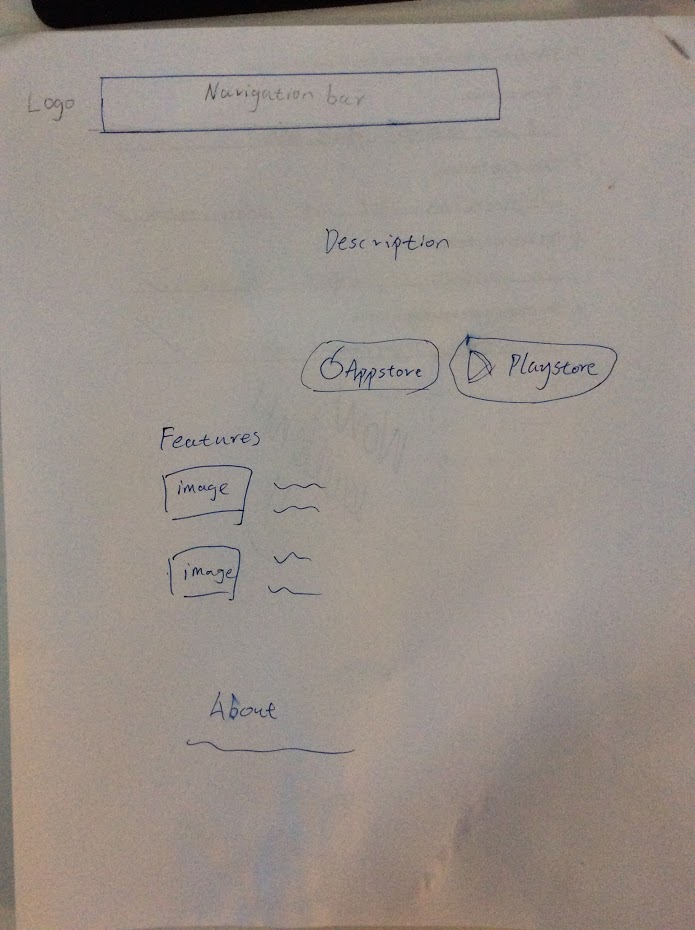 Logo
Navigation bar
Description
Appstore
Playstore
Features
image
image
About